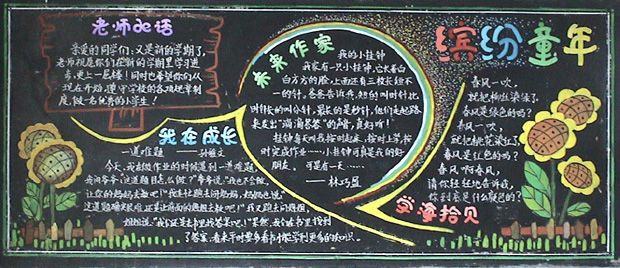 老师de话
亲爱的同学们：又是新的学期了，
老师祝愿你们在新的学期里学习进
步，更上一层楼！同时也希望你们从
现在开始，遵守学校的各项规章制
度，做一名优秀的小学生！
未来作家
我的小挂钟
我家有一只小挂钟，它长着白
白方方的脸，上面还有三根长短不
一的针。爸爸告诉我，短的叫时针，比
时针长的叫分针，最长的是秒针，他们走起路
来发出“滴滴答答”的声音，真好听！
挂钟每天叫我按时起床，按时上学，按
时完成作业……小挂钟可真是我的好
朋友。可是有一天……
——林巧盈
缤纷童年
春风一吹，
就把柳丝染绿了，
春风是绿色的吗？
春风一吹，
就把桃花染红了，
春风是红色的吗？
春风啊春风，
请你轻轻地告诉我，
你到底是什么颜色的？
我在成长
一道难题
今天，我在做作业的时候遇到一道难题，
了答案。看来平时要多看书才能学到更多的知识。
学海拾贝